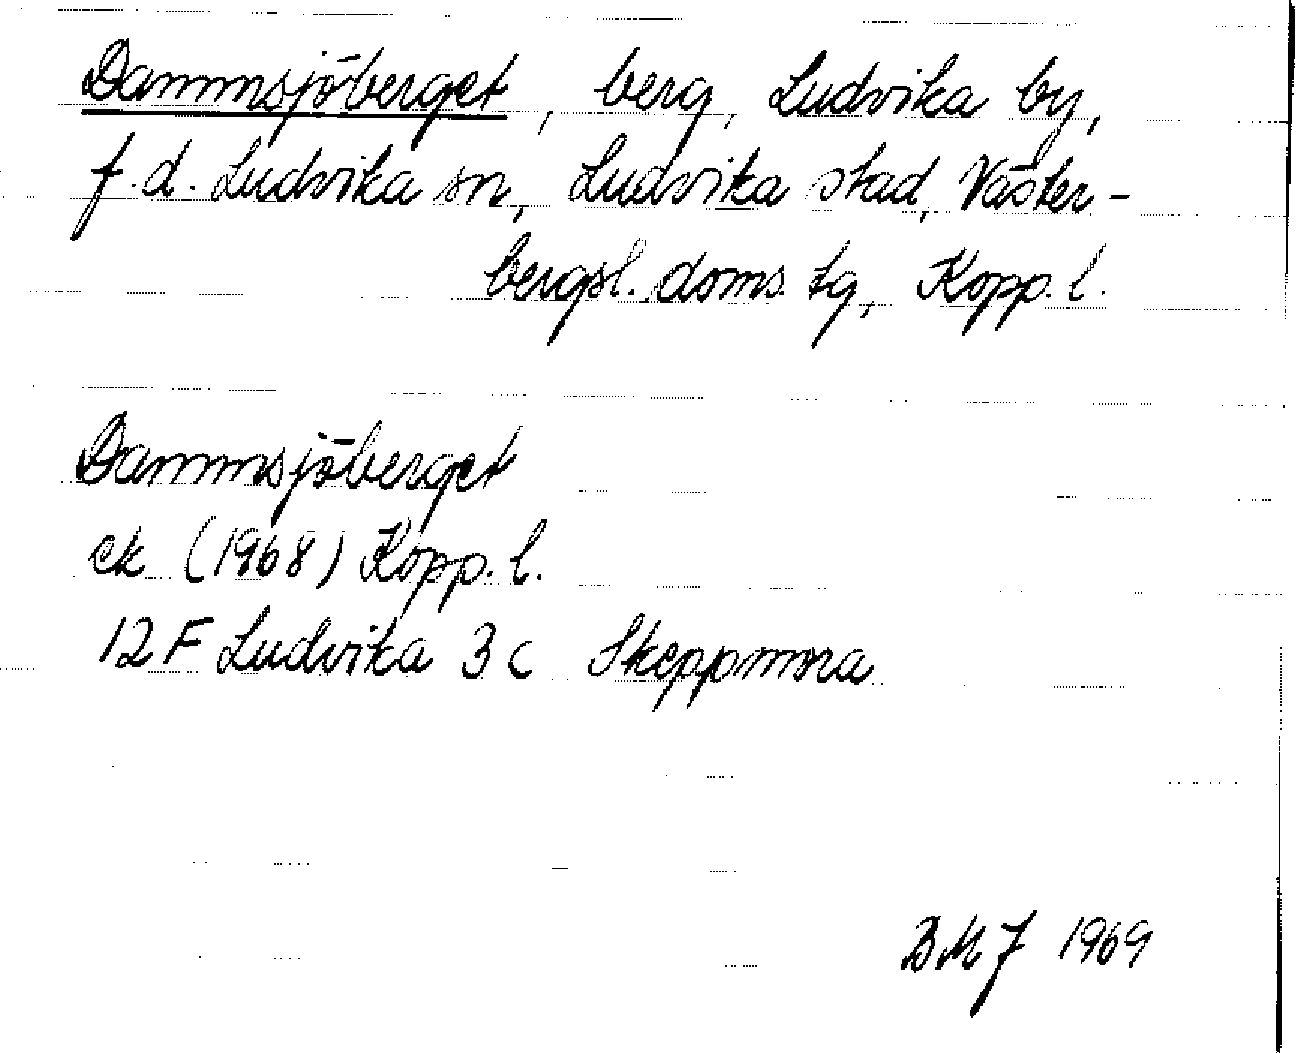 Dammsjöberget, berg, Ludvika by,
f.d. Ludvika sn, Ludvika stad, Väster-
bergsl. doms. tg, Kopp. l.
Dammsjöberget
ek (1968) Kopp. l.
12 F Ludvika 3 c Skeppmora
BMJ 1969